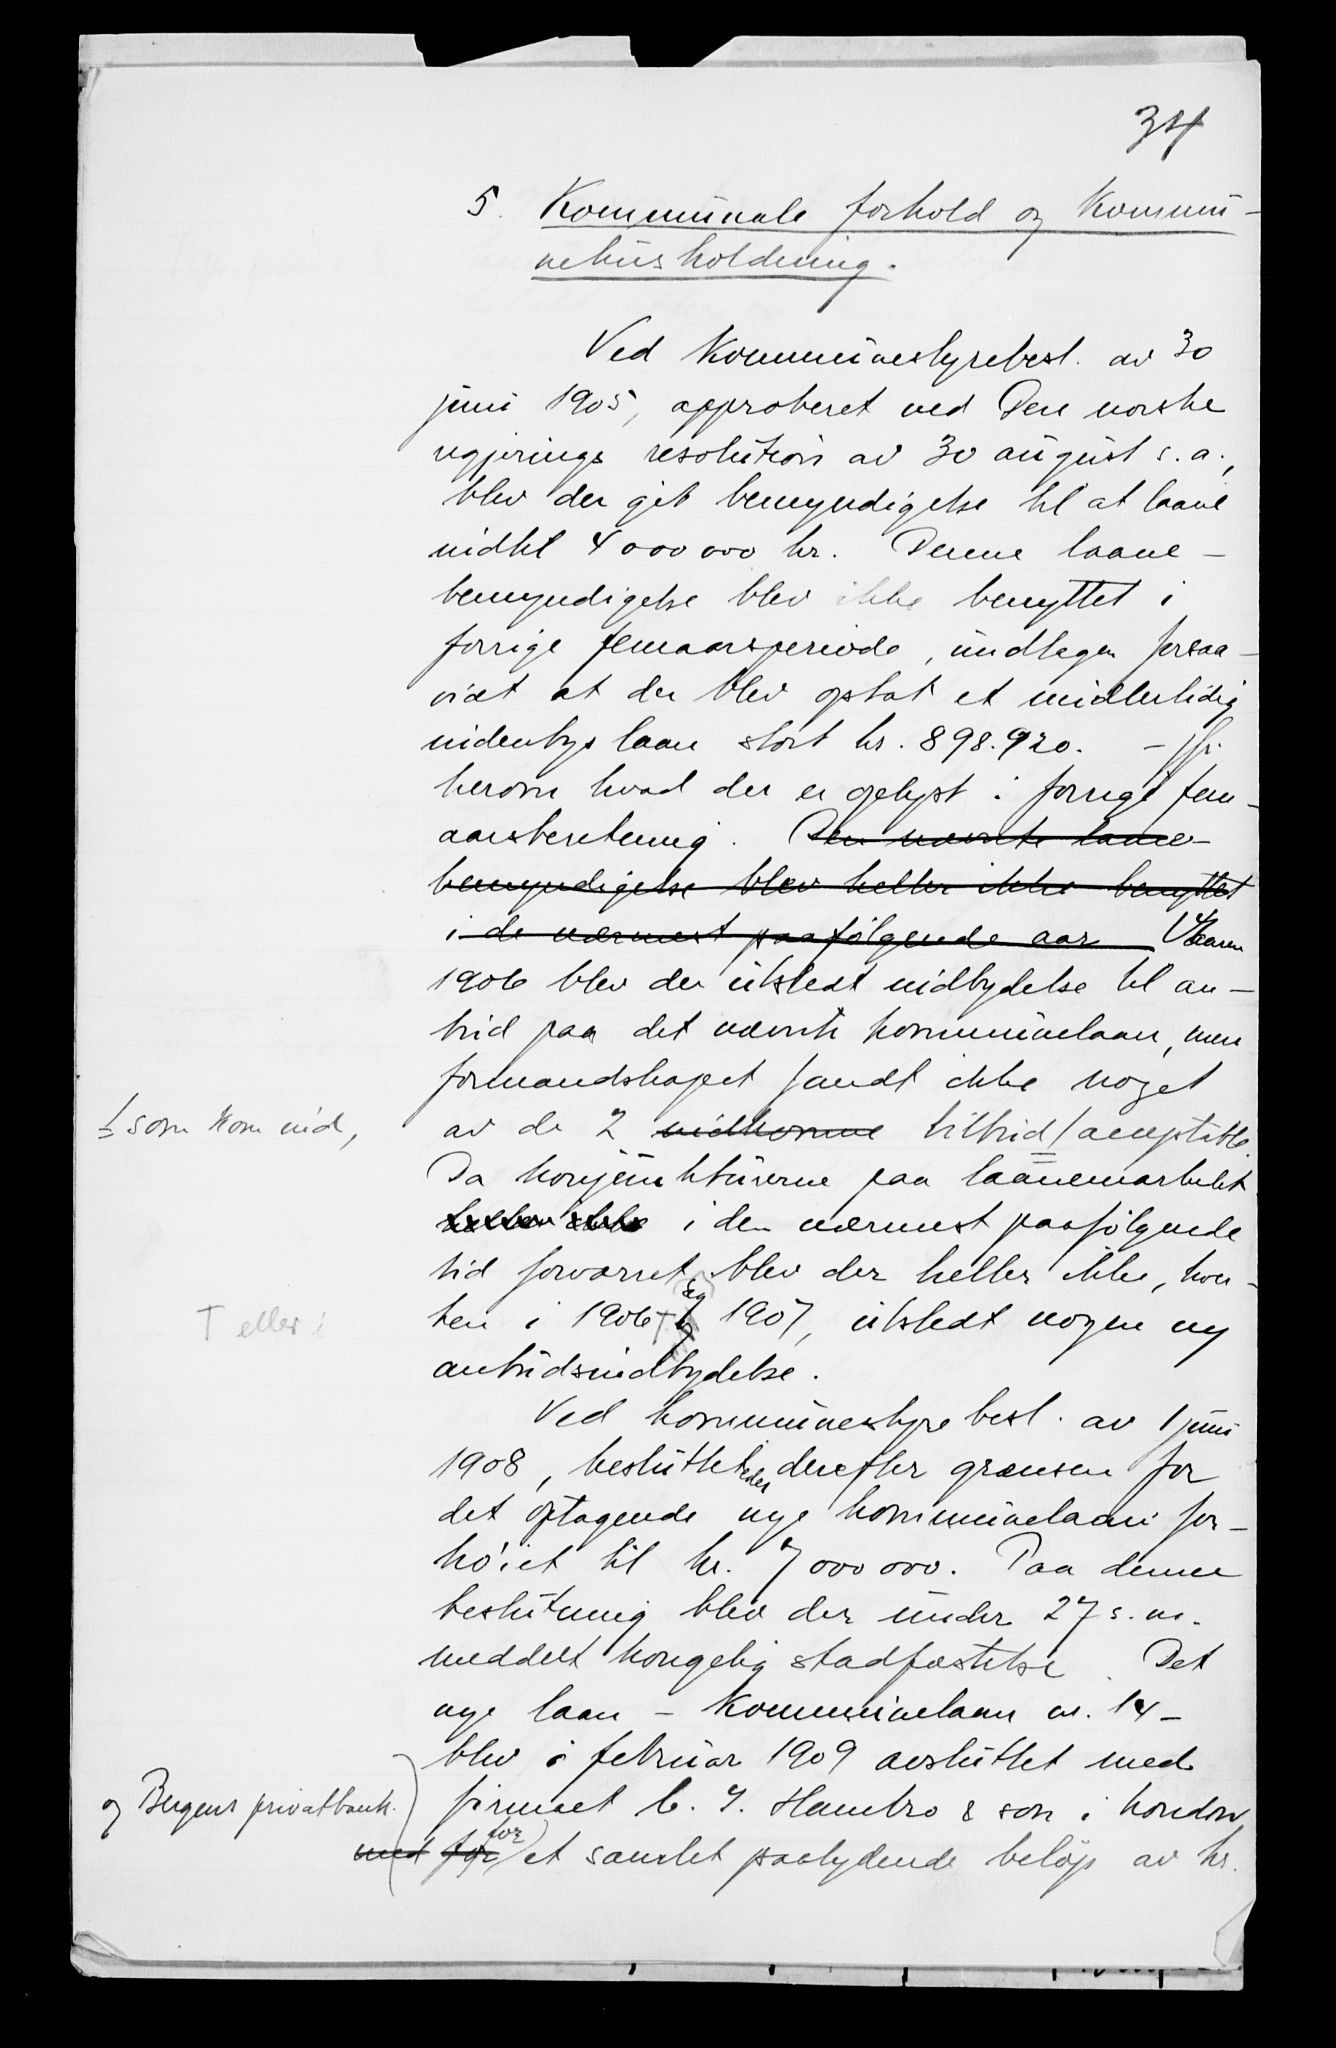 34
5. Kommunale forhold og Kommu-
nehusholdning.
Ved Kommunestyrebesl. av 30
juni 1905, approberet ved Den norske
regjerings resolution av 30 august s. a.,
blev der git bemyndigelse til at laane
indtil 4 000 000 kr. Denne laane-
bemyndigelse blev ikke benyttet i
forrige femaarsperiode, undtagen forsaa-
vidt at der blev optat et midlertidig
indenbys laan stort kr. 898.920. - jfr.
herom hvad der er oplyst i forrige fem-
aarsberetning. Den nævnte laane-
bemyndigelse blev heller ikke benyttet
i de nærmest paafølgende aar Vaaren
1906 blev der utstedt indbydelse til an-
bud paa det nævnte kommunelaan, men
formandskapet fandt ikke noget
som kom ind,
av de 2 indkomne tilbud / acceptable.
Da konjunkturerne paa laanemarkedet
heller ikke i den nærmest paafølgende
tid forværret blev der heller ikke, hver-
T eller i
ken i 1906 og 1907, utstedt nogen ny
anbudsindbydelse.
Ved kommunestyrebesl. av 1 juni
1908, besluttedes derefter grænsen for
det optagende nye kommunelaan for-
høiet til kr. 7 000 000. Paa denne
beslutning blev der under 27 s. m.
meddelt kongelig stadfæstelse. Det
nye laan - Kommunelaan nr. 14 -
blev i februar 1909 avsluttet med
og Bergens privatbank.
firmaet C. J. Hambro & son i London
med for for et samlet paalydende beløp av kr.